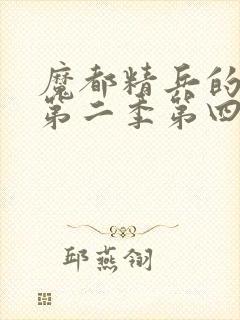 魔都精兵的
第二季第四
邱燕翎